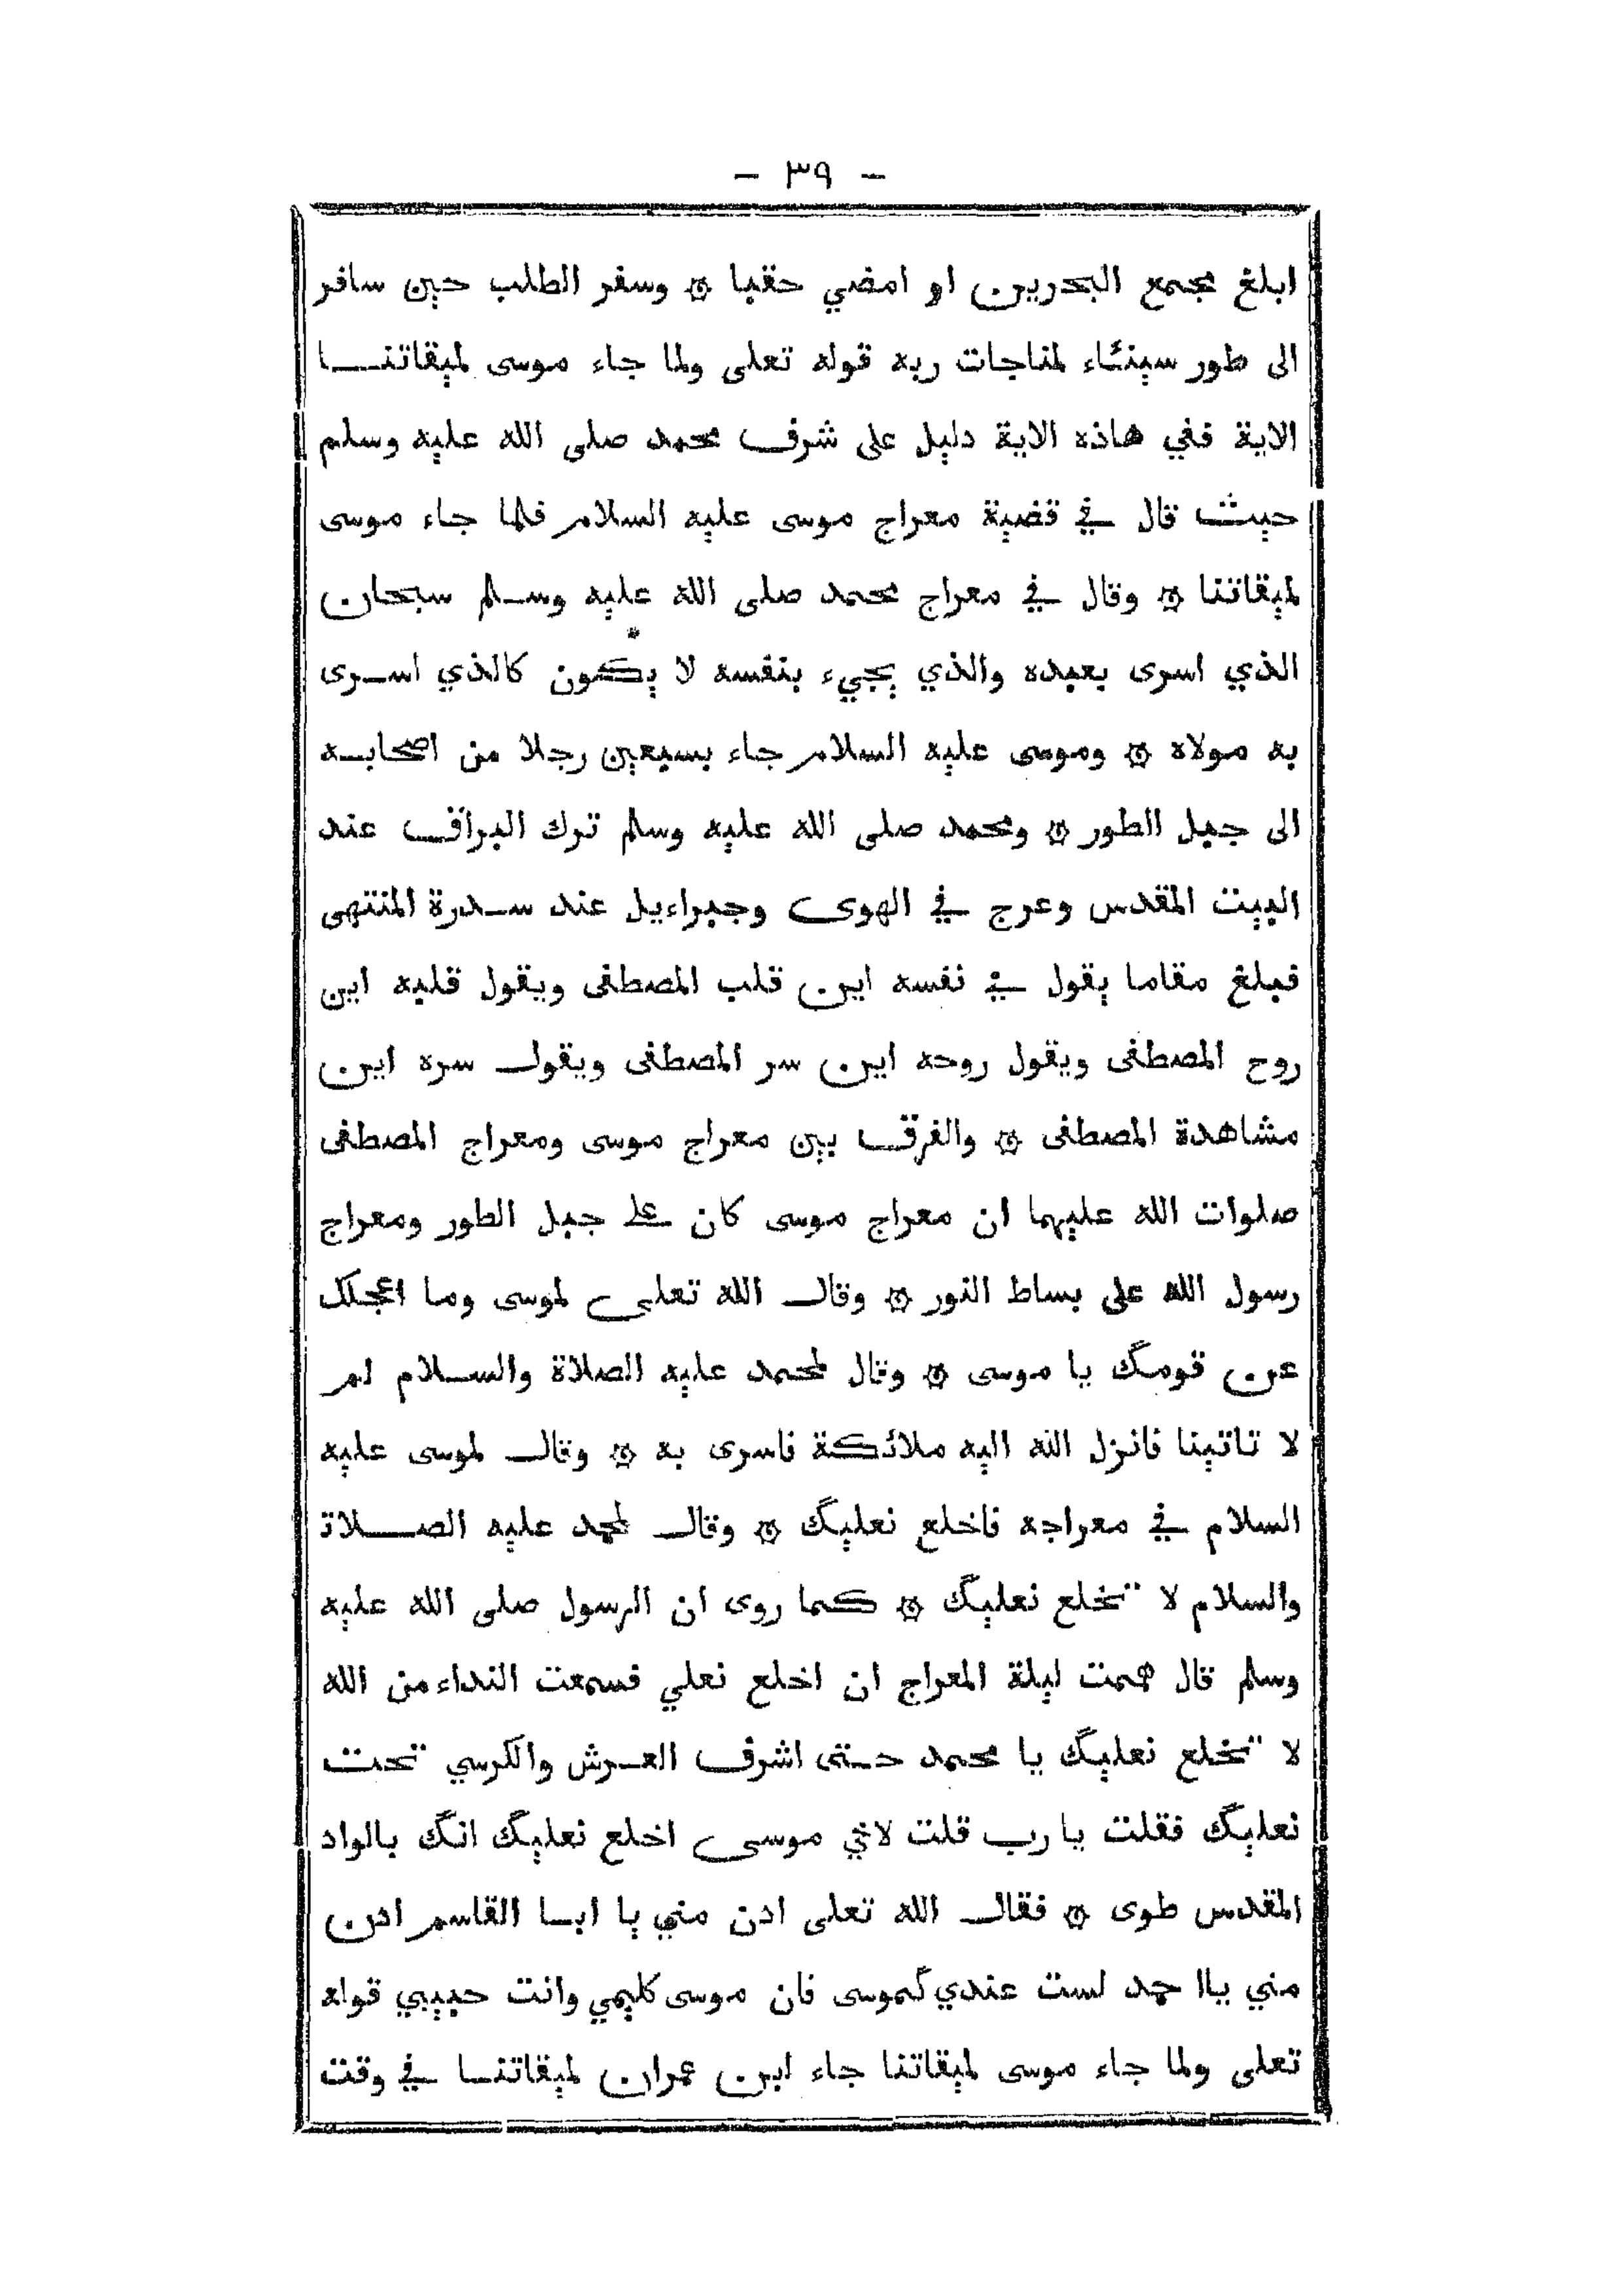 - ٣٩ -
ابلغ مجمع البحرين او امضي حقبا ۞ وسفر الطلب حين سافر
الى طور سينئاء لمناجات ربه قوله تعلى ولما جاء موسى لميقاتنا
الاية ففي هاذه الاية دليل على شرف محمد صلى الله عليه وسلم
حيث قال في قضية معراج موسى عليه السلام فلما جاء موسى
لميقاتنا ۞ وقال في معراج محمد صلى الله عليه وسلم سبحان
الذي اسرى بعبده والذي يجيء بنفسه لا يكون كالذي اسرى
به مولاه ۞ وموسى عليه السلام جاء بسبعين رجلا من اصحابه
الى جبل الطور ۞ ومحمد صلى الله عليه وسلم ترك البراق عند
البيت المقدس وعرج في الهوى وجبراءيل عند سدرة المنتهى
فبلغ مقاما يقول في نفسه اين قلب المصطفى ويقول قلبه اين
روح المصطفى ويقول روحه اين سر المصطفى ويقول سره اين
مشاهدة المصطفى ۞ والفرق بين معراج موسى ومعراج المصطفى
صلوات الله عليهما ان معراج موسى كان على جبل الطور ومعراج
رسول الله على بساط النور ۞ وقال الله تعلى لموسى وما اعجلك
عن قومك يا موسى ۞ وقال لمحمد عليه الصلاة والسلام لم
لا تاتينا فانزل الله اليه ملائكة فاسرى به ۞ وقال لموسى عليه
السلام في معراجه فاخلع نعليك ۞ وقال لمحمد عليه الصلاة
والسلام لا تخلع نعليك ۞ كما روى ان الرسول صلى الله عليه
وسلم قال هممت ليلة المعراج ان اخلع نعلي فسمعت النداء من الله
لا تخلع نعليك يا محمد حتى اشرف العرش والكرسي تحت
نعليك فقلت يا رب قلت لاخي موسى اخلع نعليك انك بالواد
المقدس طوى ۞ فقال الله تعلى ادن مني يا ابا القاسم ادن
مني يا احمد لست عندي كموسى فان موسى كليمي وانت حبيبي قوله
تعلى ولما جاء موسى لميقاتنا جاء ابن عمران لميقاتنا في وقت